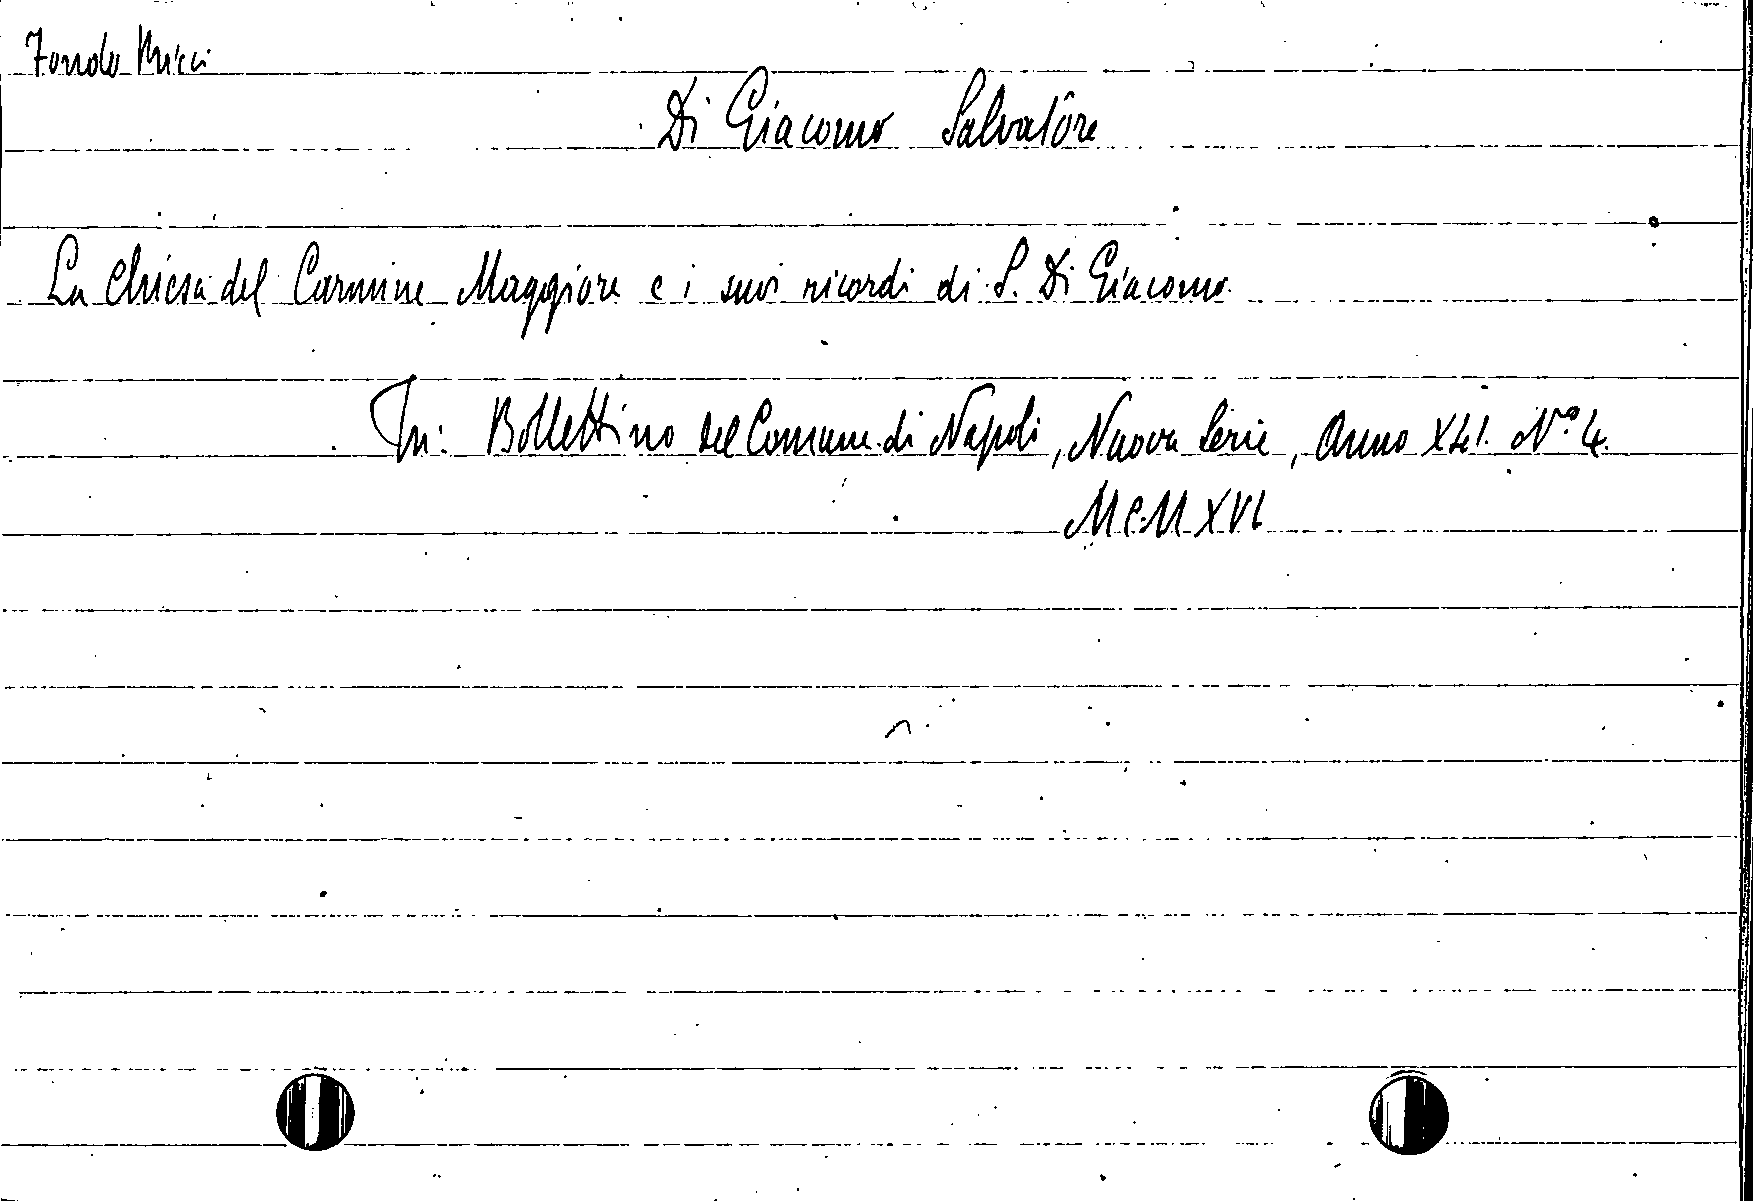 Fondo Ricci
Di Giacomo Salvatore
La Chiesa del Carmine Maggiore e i suoi ricordi di S. Di Giacomo
In: Bollettino del Comune di Napoli, Nuova Serie, Anno XLI. N.º 4.
MCMXVI